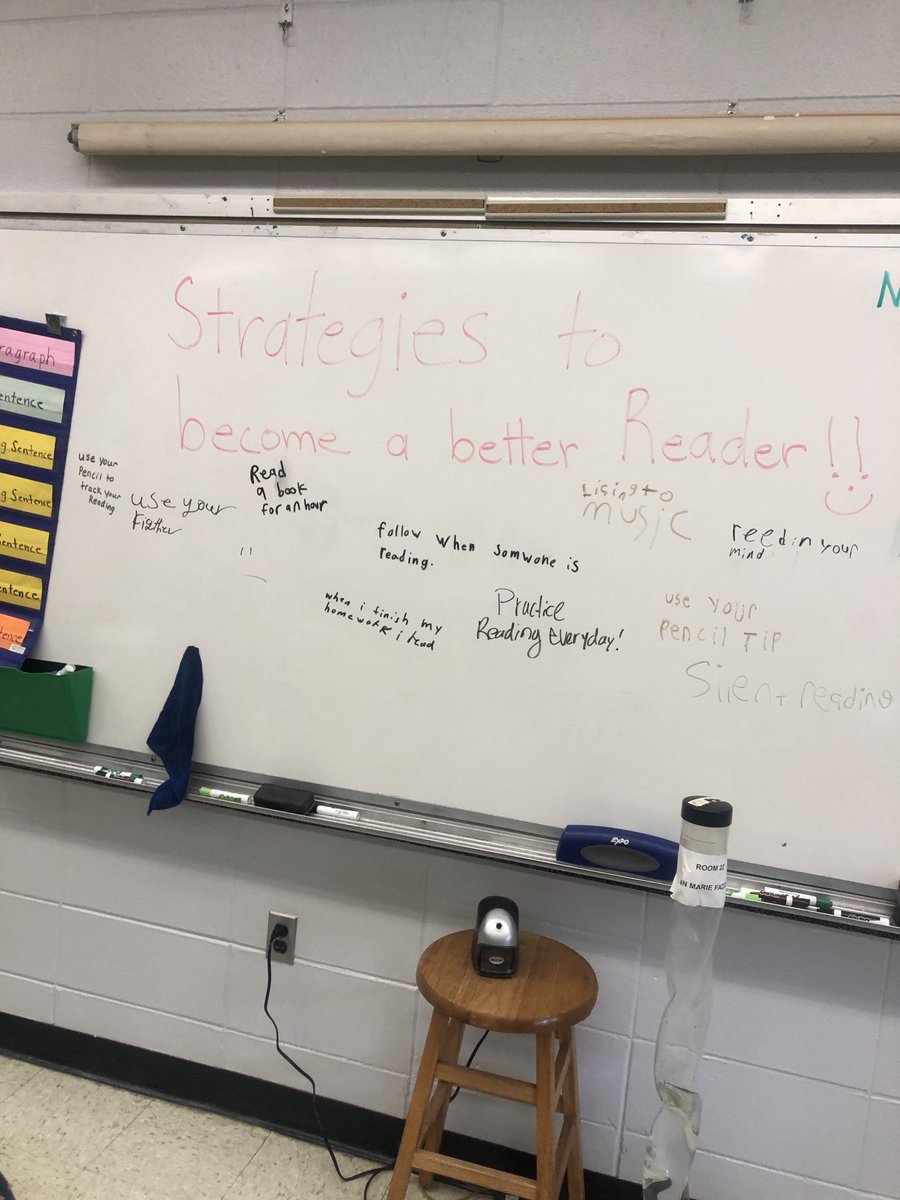 Strategies to
become a better Reader!!
N
ragraph
entence
g Sentence
g Sentence
entence
entence
tence
use your
Pencil to
track your
Reading
use your
Read
a book
for an hour
follow when somwone is
reading.
Lising to
music
reed in your
mind
when i finish my
homework i read
Practice
Reading Everyday!
use your
Pencil Tip
Silent reading
EXPO
ROOM 22
N MARIE FAZ